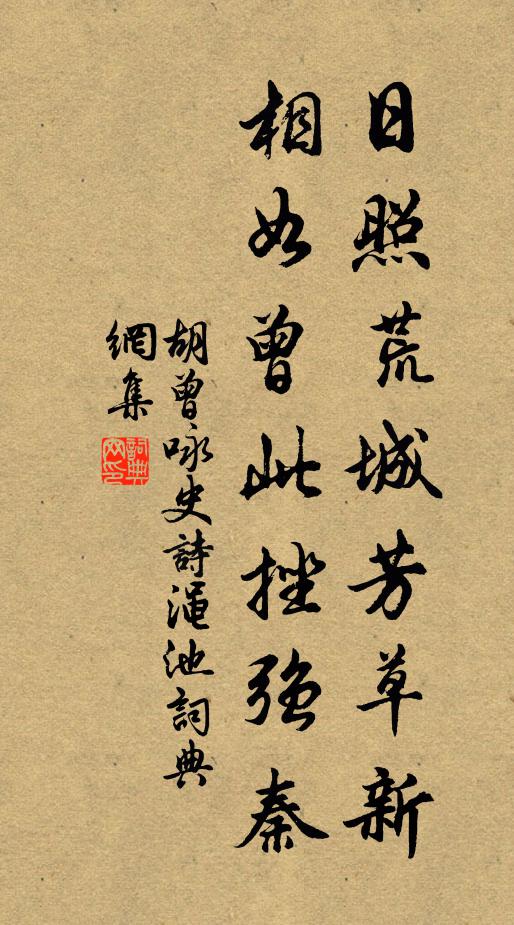 日照荒城芳草新
相如曾此挫強秦
胡曾咏史詩澠池詞典
網集
詞典
网印